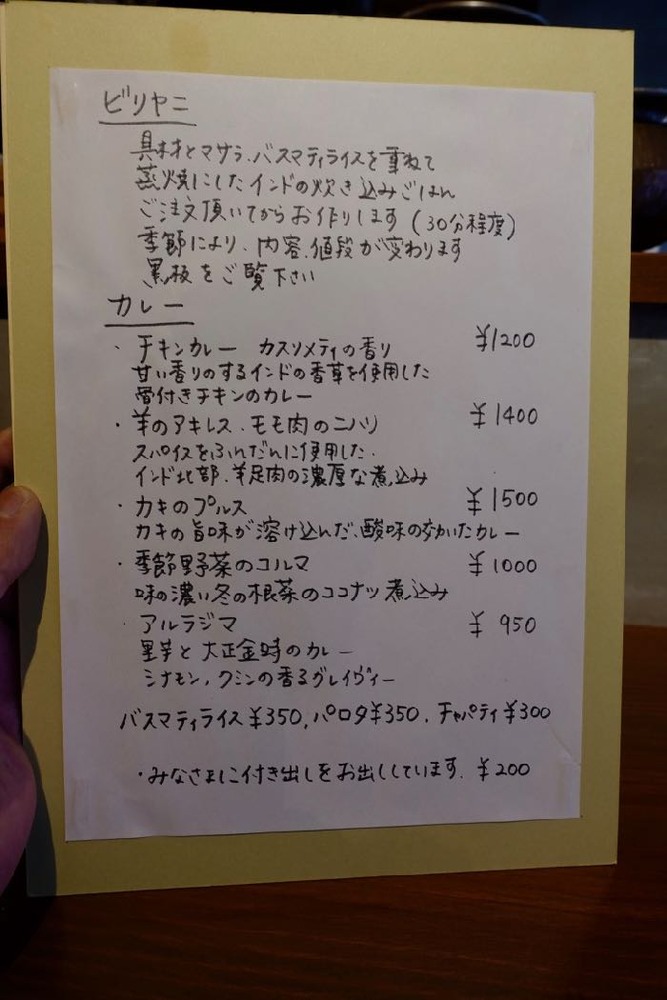 ビリヤニ
具材とマサラ、バスマティライスを重ねて
蒸焼にしたインドの炊き込みごはん
ご注文頂いてからお作りします (30分程度)
季節により、内容、値段が変わります
黒板をご覧下さい
カレー
・チキンカレー カスリメティの香り ¥1200
甘い香りのするインドの香草を使用した
骨付きチキンのカレー
・羊のアキレス、モモ肉のニハリ ¥1400
スパイスをふんだんに使用した、
インド北部、羊足肉の濃厚な煮込み
・カキのプルス ¥1500
カキの旨味が溶け込んだ、酸味の効いたカレー
・季節野菜のコルマ ¥1000
味の濃い冬の根菜のココナッツ煮込み
・アルラジマ ¥950
里芋と大正金時のカレー
シナモン、クミンの香るグレイヴィー
バスマティライス¥350, パロタ¥350、チャパティ¥300
・みなさまに付き出しをお出ししています、¥200